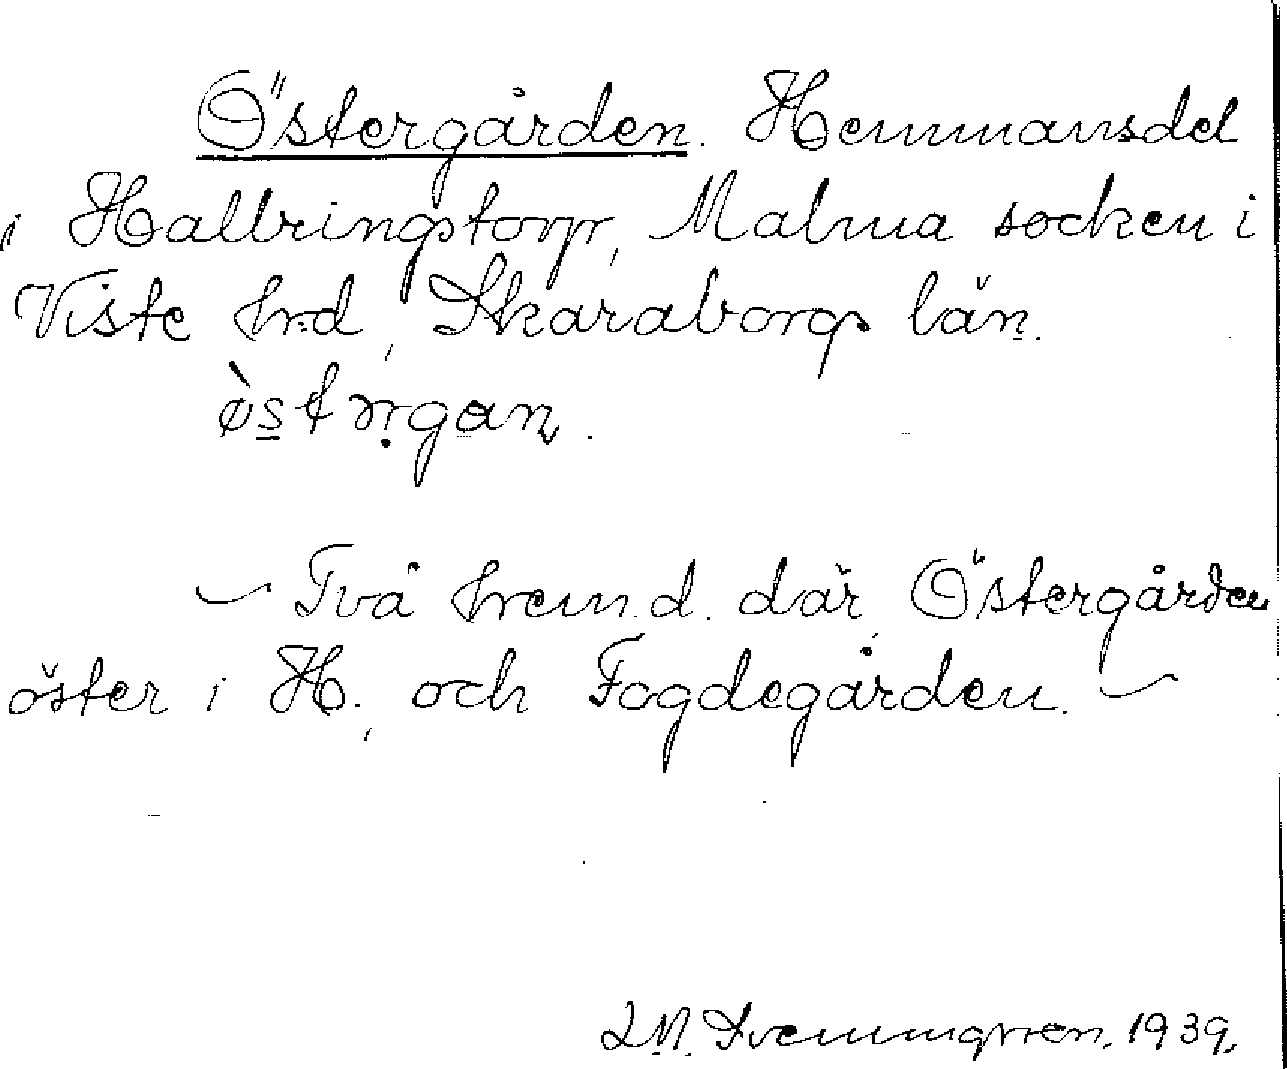 Östergården. Hemmansdel
i Hallbringstorp, Malma socken i
Viste hrd, Skaraborgs län.
Två hem.d. där, Östergården
öster i H., och Fogdegården.
J.N. Svenungsson. 1939.